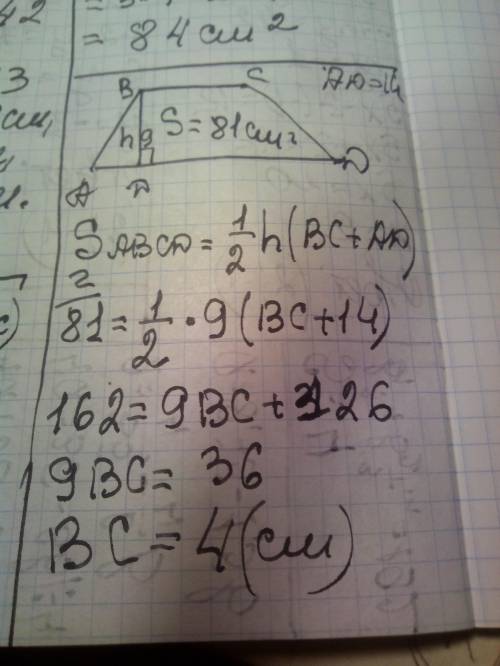 42
= 84 см²
3
см,
B C AD=14
h 9 S=81см²
A D
S ABCD = 1/2 h(BC+AD)
2
81 = 1/2 · 9 (BC+14)
162 = 9BC + 126
9BC = 36
BC = 4 (см)